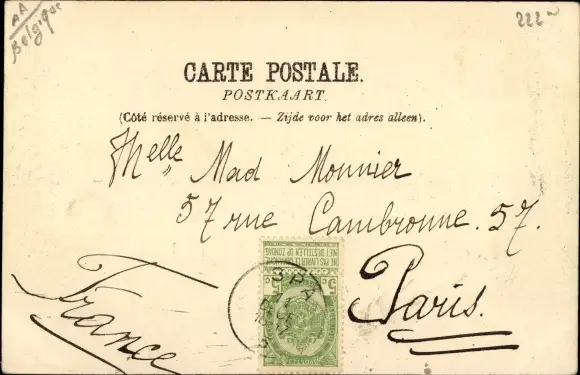 AA
Belgique
222
CARTE POSTALE.
POSTKAART.
(Côté réservé à l'adresse. — Zijde voor het adres alleen).
Melle Mad Monnier
57 rue Cambronne. 57.
Paris.
France
NE PAS LIVRER LE DIMANCHE
NIET BESTELLEN OP ZONDAG
5 c 5
SPA